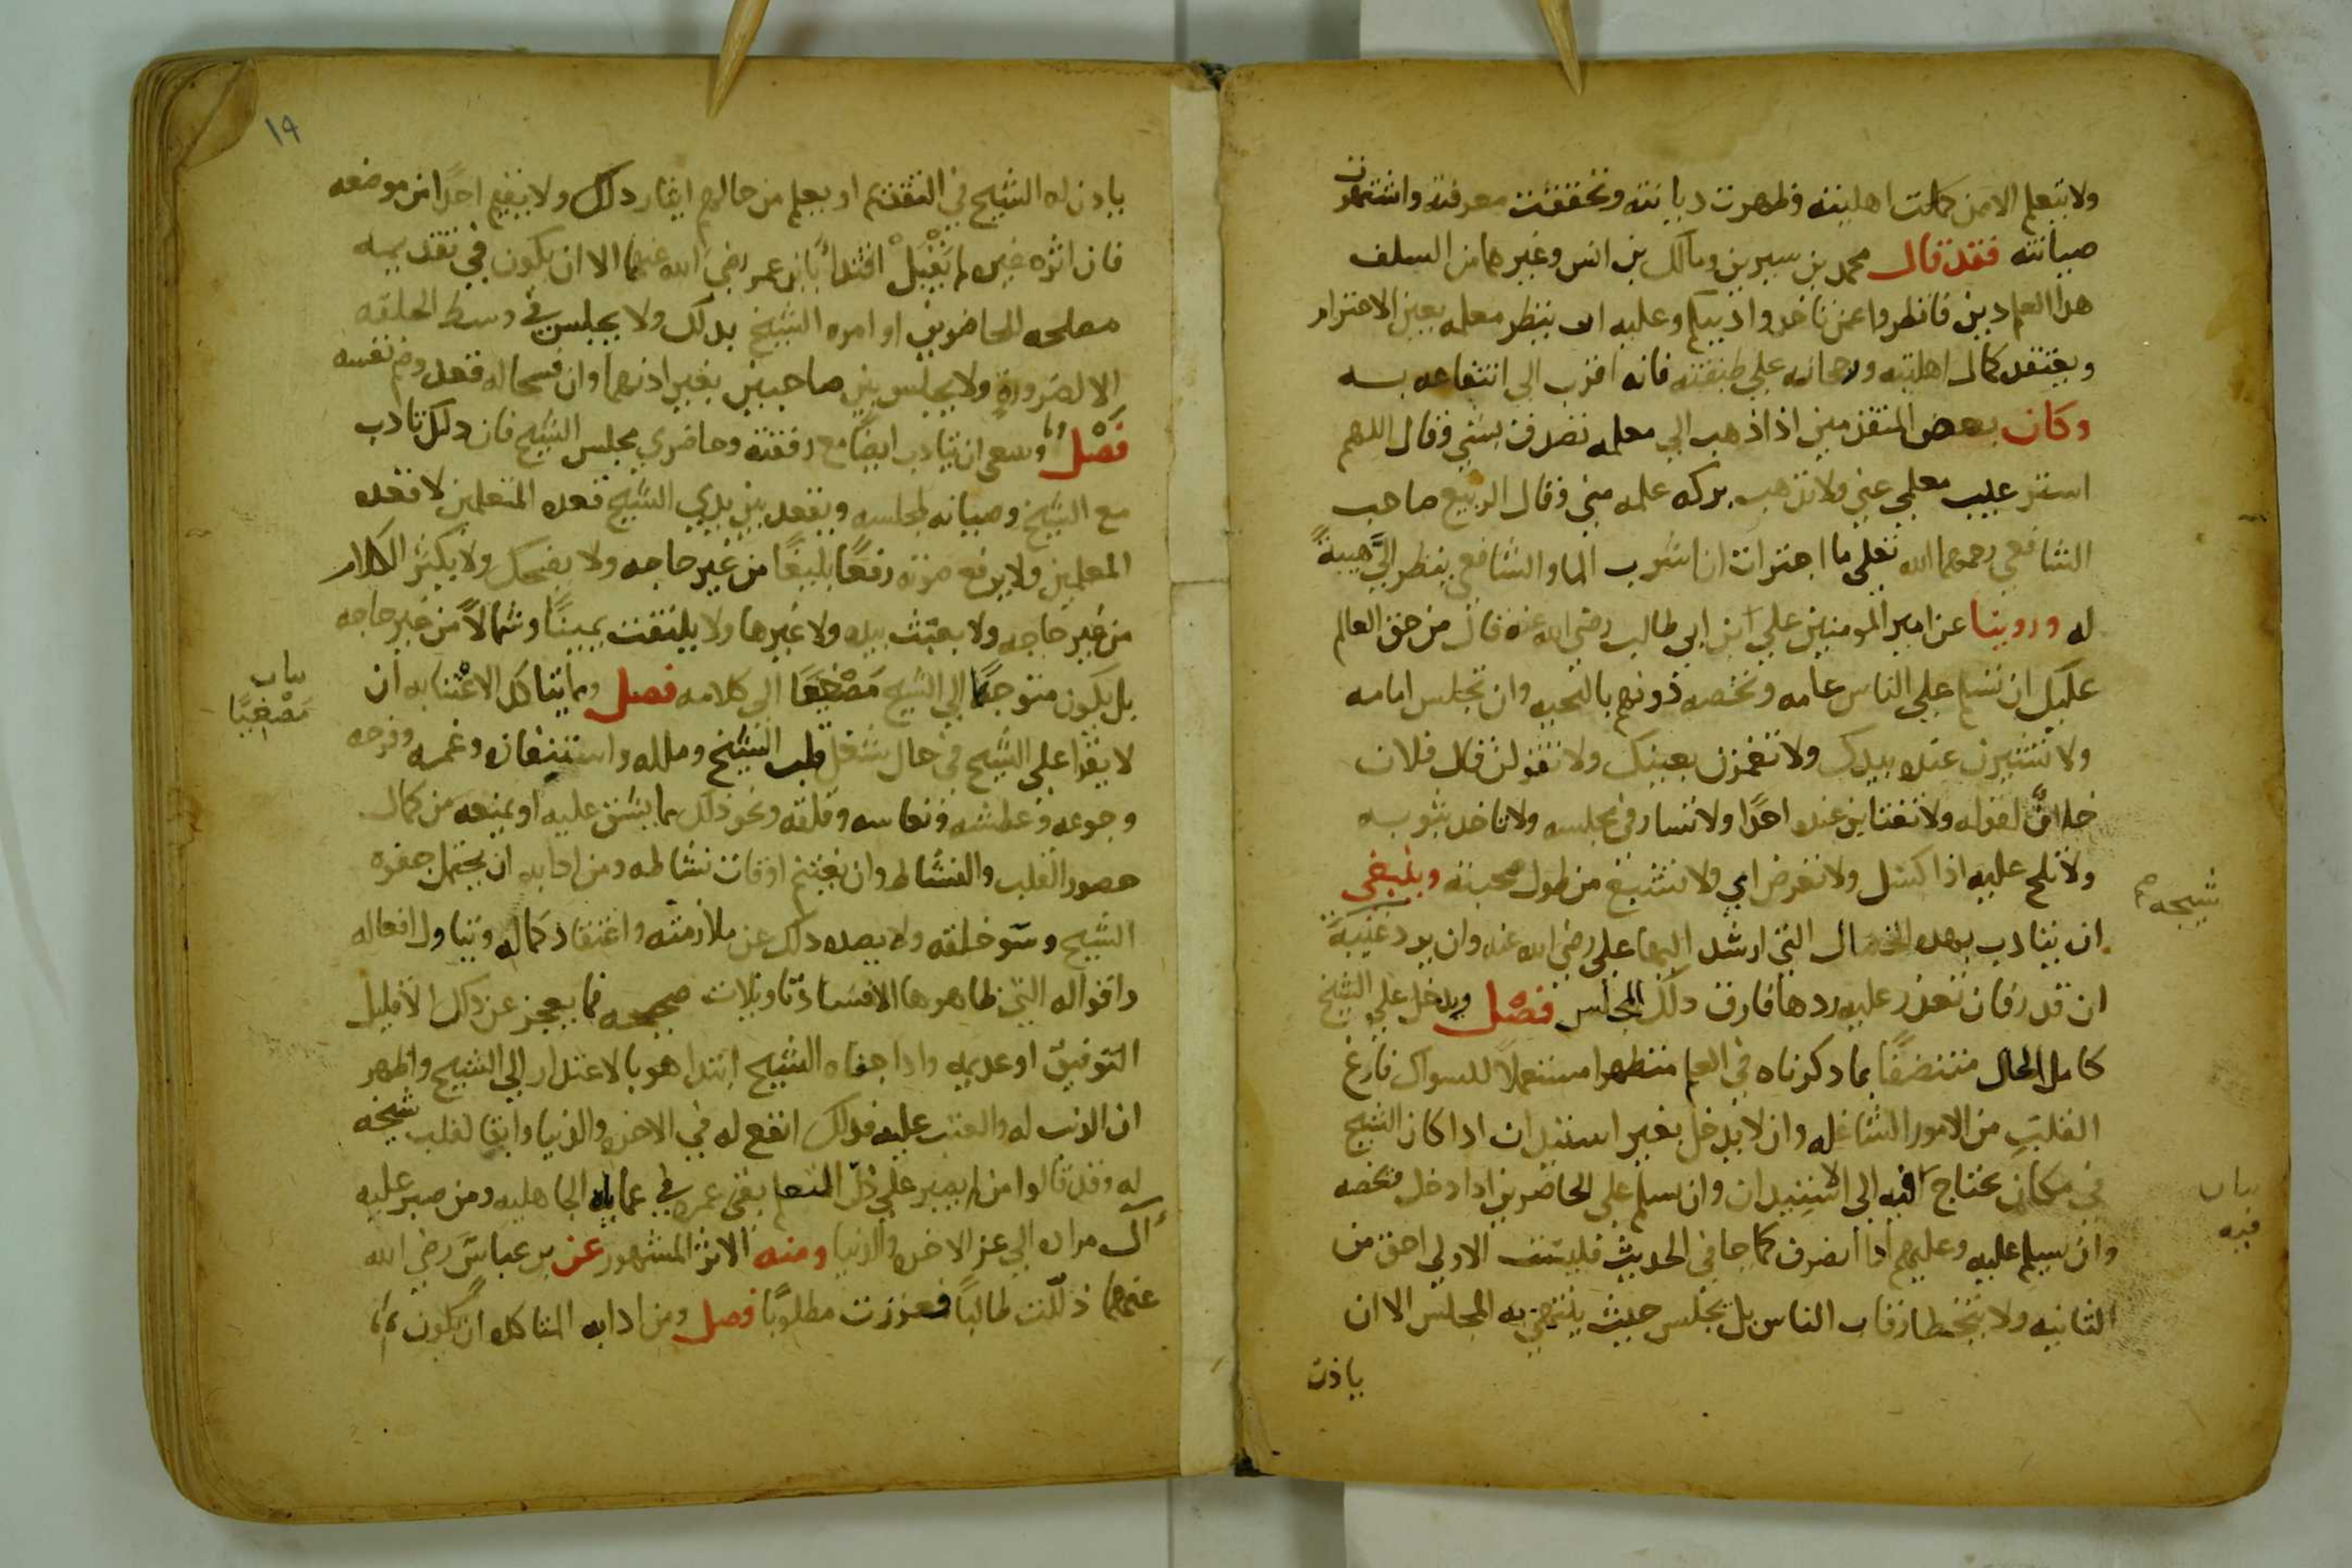 ولا يتعلم الا ممن كملت اهليته وظهرت ديانته وتحققت معرفته واشتهرت
صيانته فقد قال محمد بن سيرين ومالك بن انس وغيرهما من السلف
هذا العلم دين فانظروا عمن تاخذوا دينكم وعليه ان ينظر معلمه بعين الاحترام
ويعتقد كمال اهليته ورجحانه على طبقته فانه اقرب الى انتفاعه به
وكان بعض المتقدمين اذا ذهب الى معلمه تصدق بشي وقال اللهم
استر عيب معلمي عني ولا تذهب بركة علمه مني وقال الربيع صاحب
الشافعي رحمهما الله تعلى ما اجترات ان اشرب الماء والشافعي ينظر اليَّ هيبةً
له وروينا عن امير المومنين علي ابن ابي طالب رضي الله عنه قال من حق العالم
عليك ان تسلم على الناس عامه وتخصه دونهم بالتحيه وان تجلس امامه
ولا تشيرن عنده بيدك ولا تغمزن بعينك ولا تقولن قال فلان
خلافًا لقوله ولا تغتابن عنده احدًا ولا تسار في مجلسه ولا تاخذ بثوبه
ولا تلح عليه اذا كسل ولا تعرض اي ولا تشبع من طول صحبته وينبغي
ان يتادب بهذه الخصال التي ارشد اليها علي رضي الله عنه وان يرد غيبة
شيخه صح
ان قدر فان تعذر عليه ردها فارق ذلك المجلس فصل ويدخل على الشيخ
كامل الحال متصفًا بما ذكرناه في العلم متطهرا مستعملاً للسواك فارغ
القلب من الامور الشاغله وان لا يدخل بغير استيذان اذا كان الشيخ
في مكان يحتاج فيه الى استيذان وان يسلم على الحاضرين اذا دخل وتخصه
بيان
فيه
وان يسلم عليه وعليهم اذا انصرف كما جا في الحديث فليست الاولى احق من
الثانيه ولا يتخطا رقاب الناس بل يجلس حيث ينتهي به المجلس الا ان
ياذن
١٩
ياذن له الشيخ في التقدم او يعلم من حالهم ايثار ذلك ولا يقيم احدًا من موضعه
فان اثره غيره لم يَقْبَلْ اقتداءً بابن عمر رضي الله عنهما الا ان يكون في تقديمه
مصلحه للحاضرين او امره الشيخ بذلك ولا يجلس في وسط الحلقه
الا لضرورةٍ ولا يجلس بين صاحبين بغير اذنهما وان فسحا له قعد وضم نفسه
فَصْلٌ وينبغي ان يتادب ايضًا مع رفقته وحاضري مجلس الشيخ فان ذلك تادب
مع الشيخ وصيانه لمجلسه ويقعد بين يدي الشيخ قعده المتعلمين لا قعده
المعلمين ولا يرفع صوته رفعًا بليغًا من غير حاجه ولا يضحك ولا يكثر الكلام
من غير حاجه ولا يعبث بيده ولا غيرها ولا يلتفت يمينًا وشمالاً من غير حاجه
بل يكون متوجهًا الى الشيخ مصغيا الى كلامه فصل ومما يتاكد الاعتنا به ان
بيان
مُصْغِيًا
لا يقرا على الشيخ في حال شغل قلب الشيخ وملله واستنفازه وغمه وفرحه
وجوعه وعطشه ونعاسه وقلقه ونحو ذلك مما يشق عليه او يمنعه من كمال
حضور القلب والنشاط وان يغتنم اوقات نشاطه ومن ادابه ان يحتمل جفوه
الشيخ وسو خلقه ولا يصده ذلك عن ملازمته واعتقاد كماله ويتاول افعاله
واقواله التي ظاهرها الافساد تاويلات صحيحه فما يعجز عن ذلك الا قليل
التوفيق او عديمه واذا جفاه الشيخ ابتدا هو بالاعتذار الى الشيخ واظهر
ان الذنب له والعتب عليه فذلك انفع له في الاخره والدنيا وابقا لقلب شيخه
له وقد قالوا من لم يصبر على ذل التعلم بقي عمره في عمايه الجاهليه ومن صبر عليه
آل مراده الى عز الاخره والدنيا ومنه الاثر المشهور عن بن عباس رضي الله
عنهما ذللت طالبًا فعززت مطلوبًا فصل ومن ادابه المتاكده ان يكون